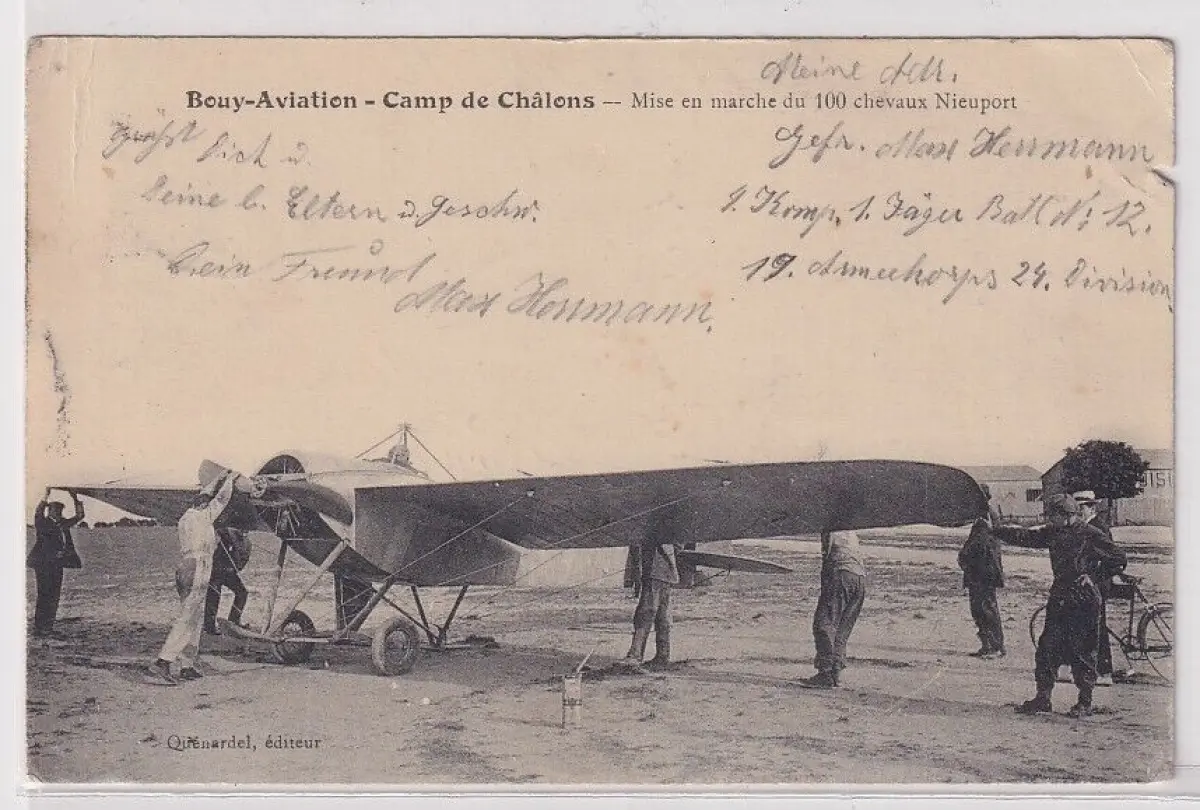 Meine Adr.
Bouy-Aviation - Camp de Châlons — Mise en marche du 100 chevaux Nieuport
Grüßt Dich u.
Deine l. Eltern u. Geschw.
Dein Freund
Max Herrmann.
Gefr. Max Herrmann
1. Komp. 1. Jäger Batl N: 12.
19. Armeekorps 24. Division
Quénardel, éditeur